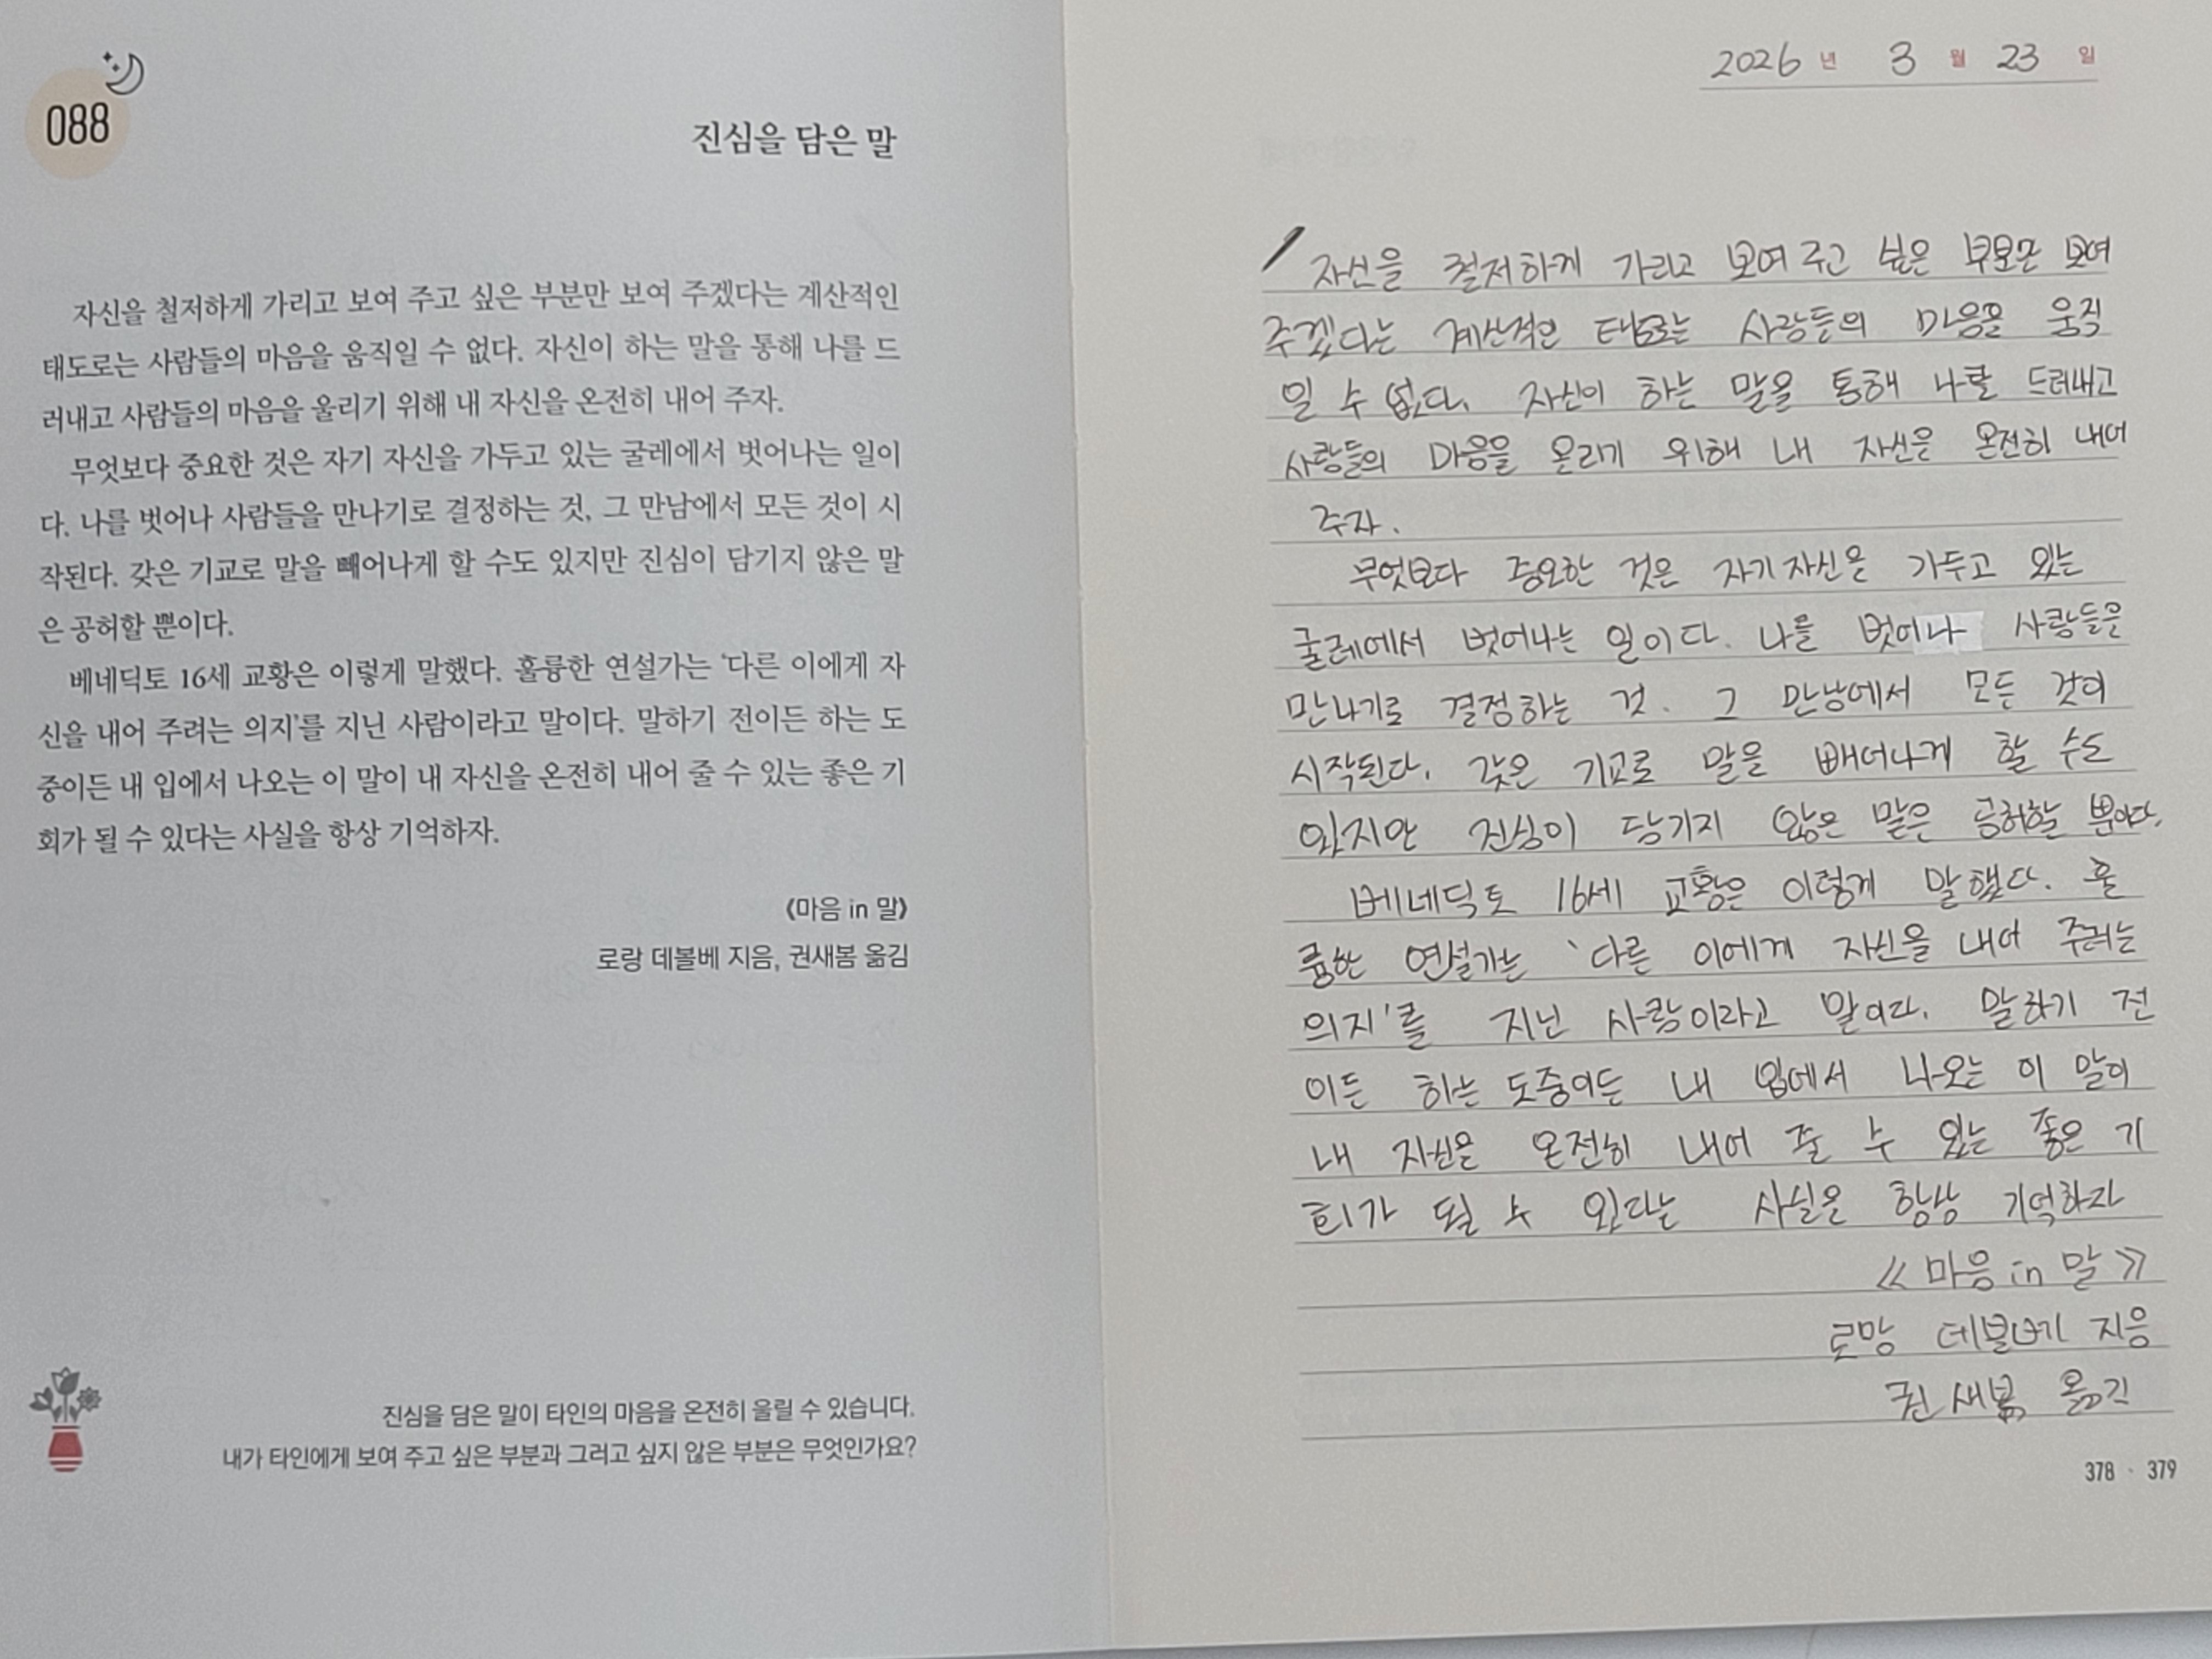 088
진심을 담은 말
자신을 철저하게 가리고 보여 주고 싶은 부분만 보여 주겠다는 계산적인
태도로는 사람들의 마음을 움직일 수 없다. 자신이 하는 말을 통해 나를 드
러내고 사람들의 마음을 울리기 위해 내 자신을 온전히 내어 주자.
무엇보다 중요한 것은 자기 자신을 가두고 있는 굴레에서 벗어나는 일이
다. 나를 벗어나 사람들을 만나기로 결정하는 것, 그 만남에서 모든 것이 시
작된다. 갖은 기교로 말을 빼어나게 할 수도 있지만 진심이 담기지 않은 말
은 공허할 뿐이다.
베네딕토 16세 교황은 이렇게 말했다. 훌륭한 연설가는 '다른 이에게 자
신을 내어 주려는 의지'를 지닌 사람이라고 말이다. 말하기 전이든 하는 도
중이든 내 입에서 나오는 이 말이 내 자신을 온전히 내어 줄 수 있는 좋은 기
회가 될 수 있다는 사실을 항상 기억하자.
《마음 in 말》
로랑 데볼베 지음, 권새봄 옮김
진심을 담은 말이 타인의 마음을 온전히 울릴 수 있습니다.
내가 타인에게 보여 주고 싶은 부분과 그러고 싶지 않은 부분은 무엇인가요?
2026 년 3 월 23 일
자신을 철저하게 가리고 보여 주고 싶은 부분만 보여
주겠다는 계산적인 태도로는 사람들의 마음을 움직
일 수 없다. 자신이 하는 말을 통해 나를 드러내고
사람들의 마음을 울리기 위해 내 자신을 온전히 내어
주자.
무엇보다 중요한 것은 자기 자신을 가두고 있는
굴레에서 벗어나는 일이다. 나를 벗어나 사람들을
만나기로 결정하는 것. 그 만남에서 모든 것이
시작된다. 갖은 기교로 말을 빼어나게 할 수도
있지만 진심이 담기지 않은 말은 공허할 뿐이다.
베네딕토 16세 교황은 이렇게 말했다. 훌
륭한 연설가는 '다른 이에게 자신을 내어 주려는
의지'를 지닌 사람이라고 말이다. 말하기 전
이든 하는 도중이든 내 입에서 나오는 이 말이
내 자신을 온전히 내어 줄 수 있는 좋은 기
회가 될 수 있다는 사실을 항상 기억하자
《마음 in 말》
로망 데볼베 지음
권새봄 옮김
378 · 379